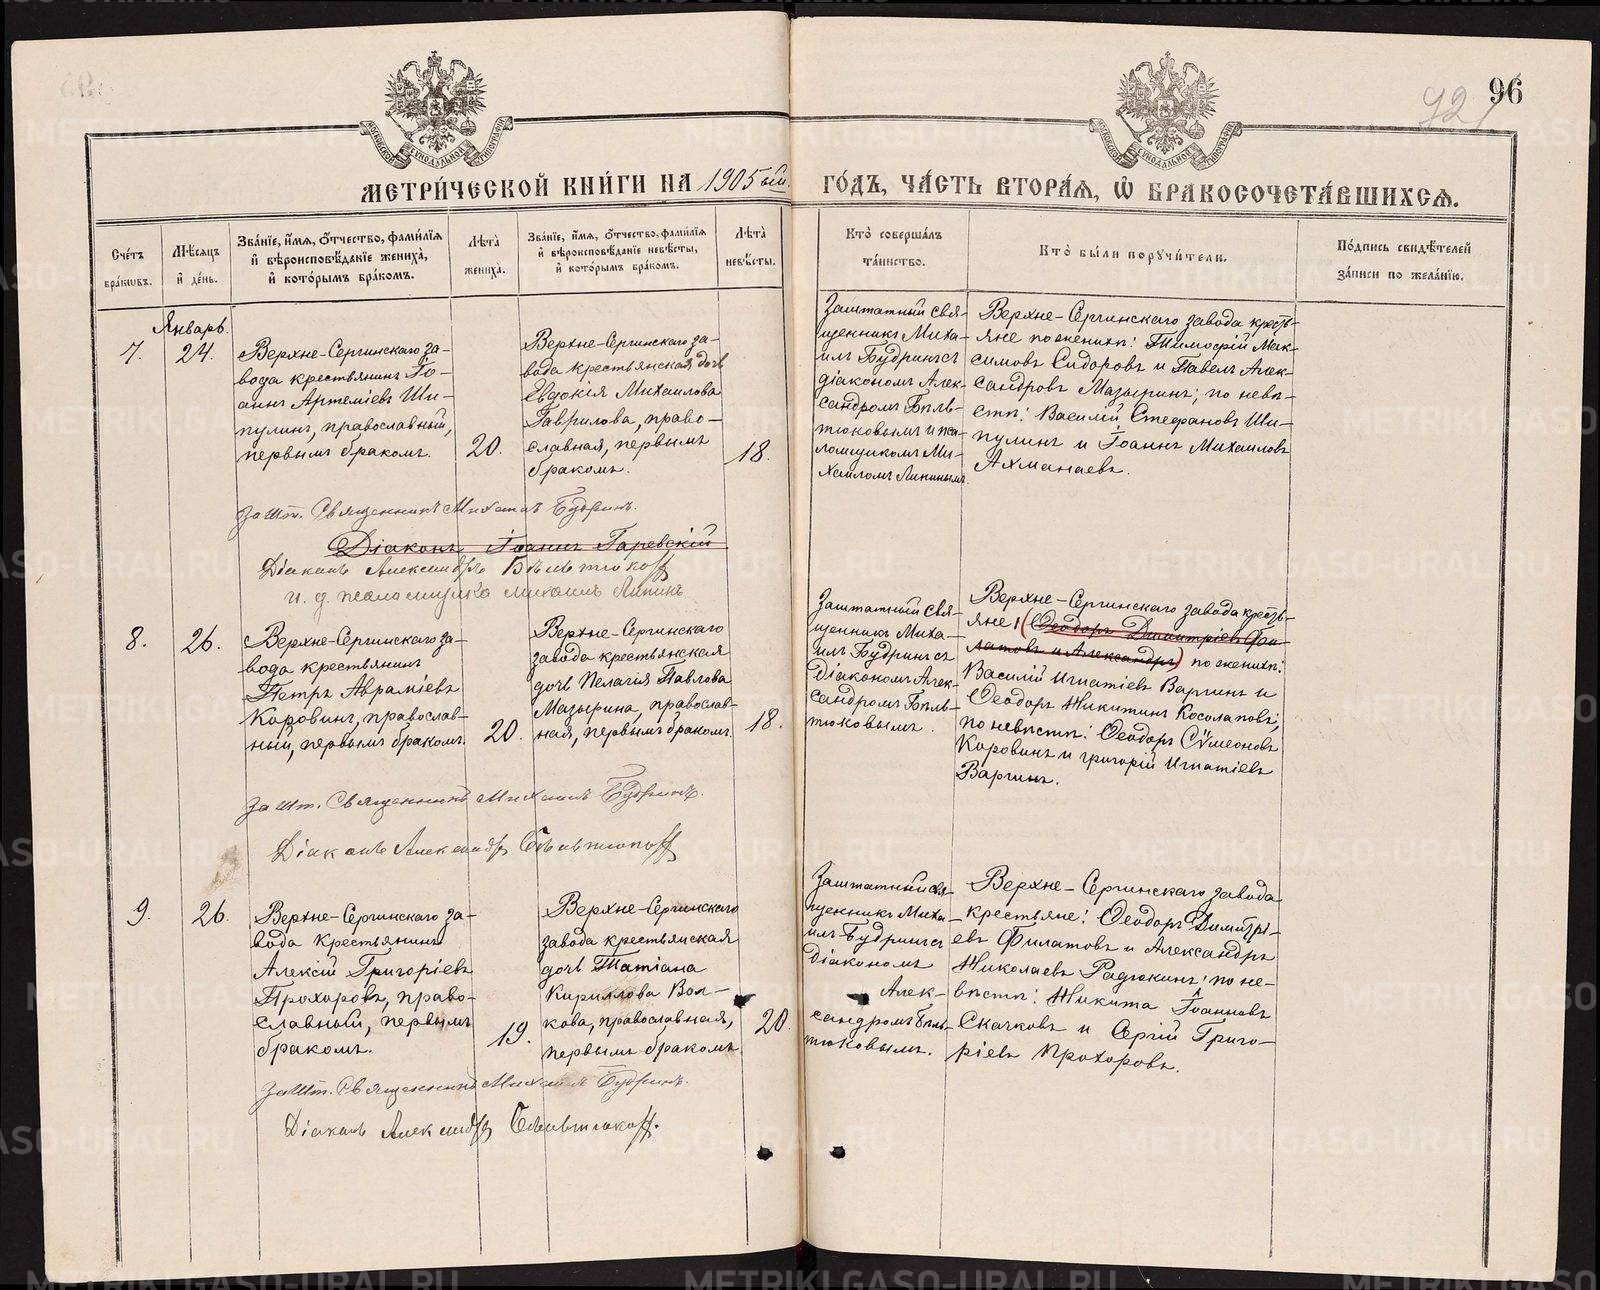 96
92
МОСКОВСКОЙ СѴНОДАЛЬНОЙ ТИПОГРАФІИ
МОСКОВСКОЙ СѴНОДАЛЬНОЙ ТИПОГРАФІИ
МЕТРИ́ЧЕСКОЙ КНИ́ГИ НА 1905ый. ГО́ДЪ, ЧА́СТЬ ВТОРА́Ѧ, Ѽ БРАКОСОЧЕТА́ВШИХСѦ.
Сче́тъ бра́кѡвъ.
Мѣ́сяцъ и҆ де́нь.
Зва́нїе, и҆́мѧ, ѻ҆́тчество, фами́лїѧ и҆ вѣроисповѣ́данїе жениха̀, и҆ кото́рымъ бра́комъ.
Лѣ́та̀ жениха̀.
Зва́нїе, и҆́мѧ, ѻ҆́тчество, фами́лїѧ и҆ вѣроисповѣ́данїе невѣ́сты, и҆ кото́рымъ бра́комъ.
Лѣ́та̀ невѣ́сты.
Кто̀ соверша́лъ та́инство.
Кто̀ бы́ли порꙋчи́тели.
По́дпись свидѣ́телей за́писи по жела́нїю.
Январь.
7.
24.
Верхне-Сергинскаго за-
вода крестьянинъ Іо-
аннъ Артеміевъ Ши-
пулинъ, православный,
первымъ бракомъ.
20.
Верхне-Сергинскаго за-
вода крестьянская дочь
Евдокія Михаилова
Гаврилова, право-
славная, первымъ
бракомъ.
18.
Заштатный свя-
щенникъ Миха-
илъ Будринъ съ
діакономъ Алек-
сандромъ Бѣль-
тюковымъ и пса-
ломщикомъ Ми-
хаиломъ Липинымъ
Верхне-Сергинскаго завода кресть-
яне по женихѣ: Тимофей Мак-
симовъ Сидоровъ и Павелъ Алек-
сандровъ Мазыринъ; по невѣ-
стѣ: Василій Стефановъ Ши-
пулинъ и Іоаннъ Михаиловъ
Ахманаевъ.
Зашт. Священникъ Михаилъ Будринъ.
Діаконъ Іоаннъ Гаревскій
Діаконъ Александръ Бѣльтюкофф
и. д. псаломщика Михаилъ Липинъ
8.
26.
Верхне-Сергинскаго за-
вода крестьянинъ
Петръ Авраміевъ
Коровинъ, православ-
ный, первымъ бракомъ.
20.
Верхне-Сергинскаго
завода крестьянская
дочь Пелагія Павлова
Мазырина, православ-
ная, первымъ бракомъ
18.
Заштатный свя-
щенникъ Миха-
илъ Будринъ съ
діакономъ Алек-
сандромъ Бѣль-
тюковымъ.
Верхне-Сергинскаго завода кресть-
яне: (Ѳеодоръ Димитріевъ Фи-
латовъ и Александръ) по женихѣ:
Василій Игнатіевъ Варгинъ и
Ѳеодоръ Никитинъ Косолаповъ;
по невѣстѣ: Ѳеодоръ Сѵмеоновъ
Коровинъ и Григорій Игнатіевъ
Варгинъ.
Зашт. Священникъ Михаилъ Будринъ.
Діаконъ Александръ Бѣльтюкофф
9.
26.
Верхне-Сергинскаго за-
вода крестьянинъ
Алексій Григоріевъ
Прохоровъ, право-
славный, первымъ
бракомъ.
19.
Верхне-Сергинскаго
завода крестьянская
дочь Татіана
Кириллова Вол-
кова, православная,
первымъ бракомъ.
20.
Заштатный свя-
щенникъ Миха-
илъ Будринъ съ
діакономъ
Алек-
сандромъ Бѣль-
тюковымъ.
Верхне-Сергинскаго завода
крестьяне: Ѳеодоръ Димитрі-
евъ Филатовъ и Александръ
Николаевъ Радюкинъ; по не-
вѣстѣ: Никита Іоанновъ
Скачковъ и Сергій Григо-
ріевъ Прохоровъ.
Зашт. Священникъ Михаилъ Будринъ.
Діаконъ Александръ Бѣльтюкофф.